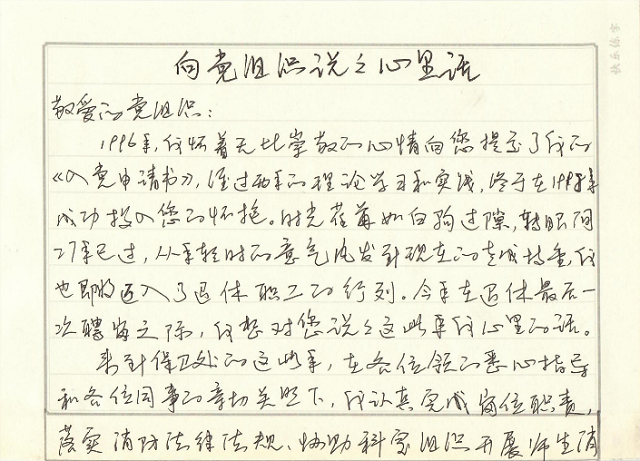 向党组织说说心里话
敬爱的党组织：
1996年，我怀着无比崇敬的心情向您提交了我的
《入党申请书》，经过两年的理论学习和实践，终于在1998年
成功投入您的怀抱。时光荏苒如白驹过隙，转眼间
27年已过，从年轻时的意气风发到现在的老成持重，我
也即将迈入了退休职工的行列。今年在退休最后一
次聘岗之际，我想对您说说这些年我心里的话。
来到保卫处的这些年，在各位领导的悉心指导
和各位同事的亲切关照下，我认真完成岗位职责，
落实消防法律法规、协助科室组织开展师生消